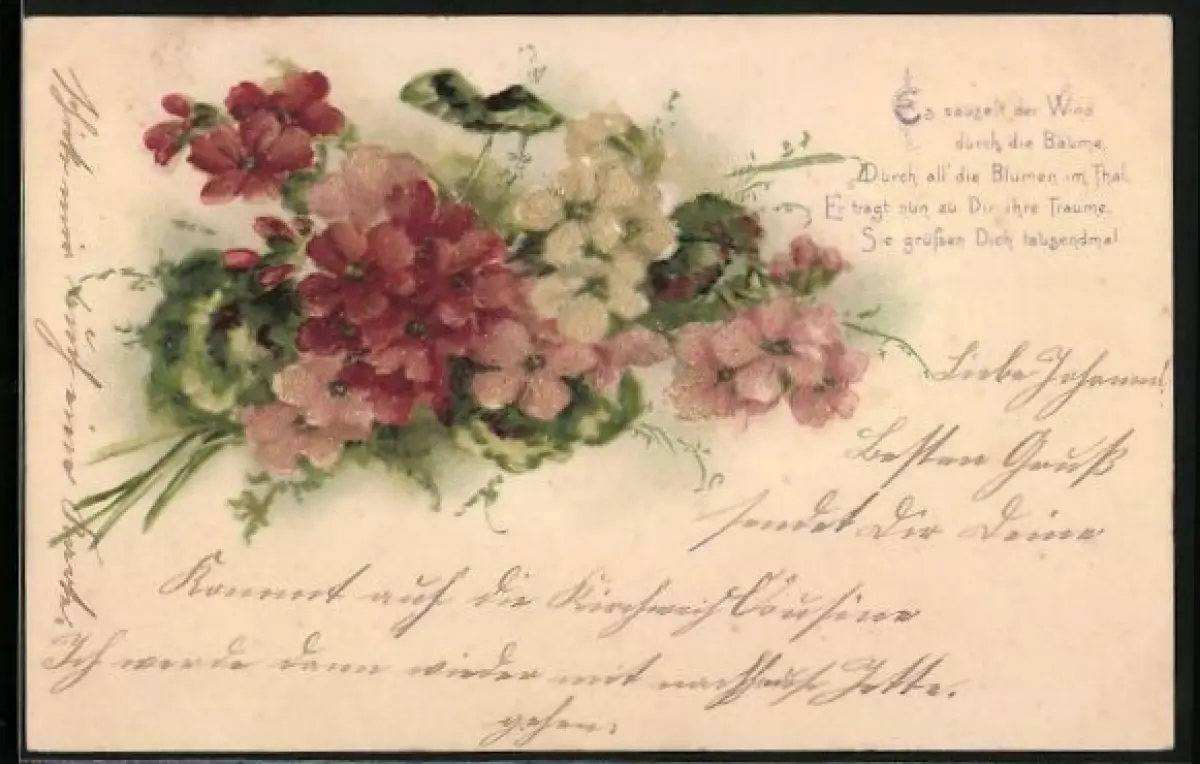 Es säuselt der Wind
durch die Bäume,
Durch all' die Blumen im Thal,
Er trägt nun zu Dir ihre Träume,
Sie grüßen Dich tausendmal
Liebe Johanna!
Besten Gruß
sendet Dir Deine
Cousine
Jette.
Kommt auf die Kirchweih
Ich werde dann wieder mit nachhause
gehen.
Schicke mir auch eine Karte.